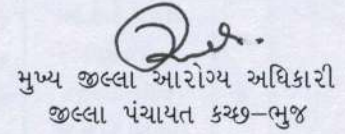 મુખ્ય જીલ્લા આરોગ્ય અધિકારી
જીલ્લા પંચાયત કચ્છ–ભુજ